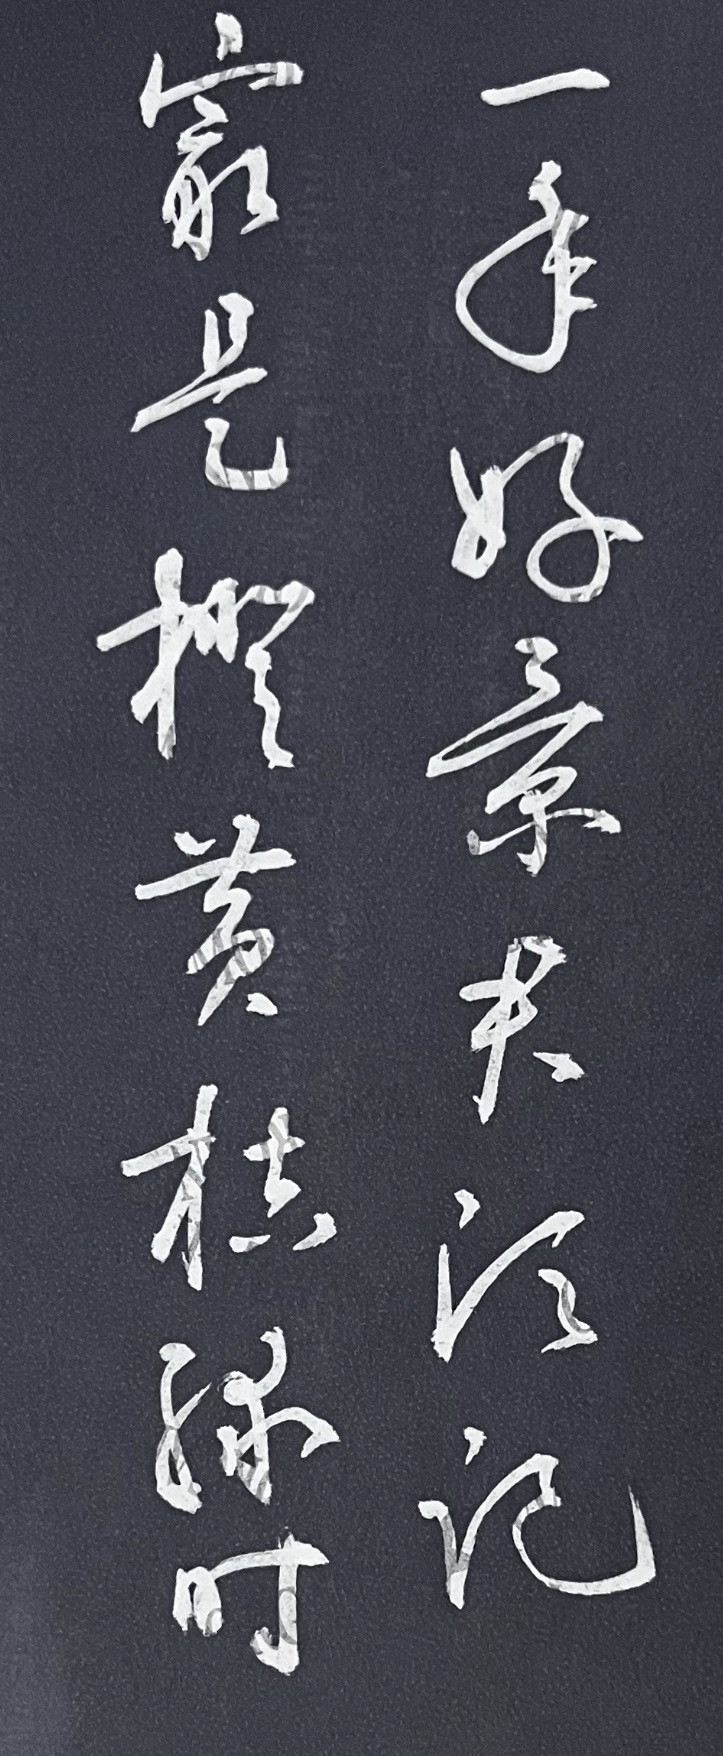 一年好景君须记
最是橙黄桔绿时